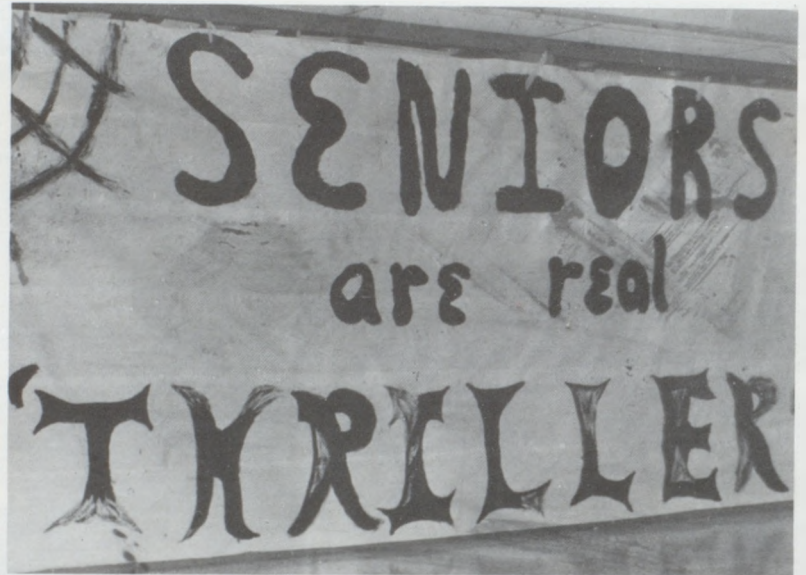 SENIORS
are real
'THRILLER